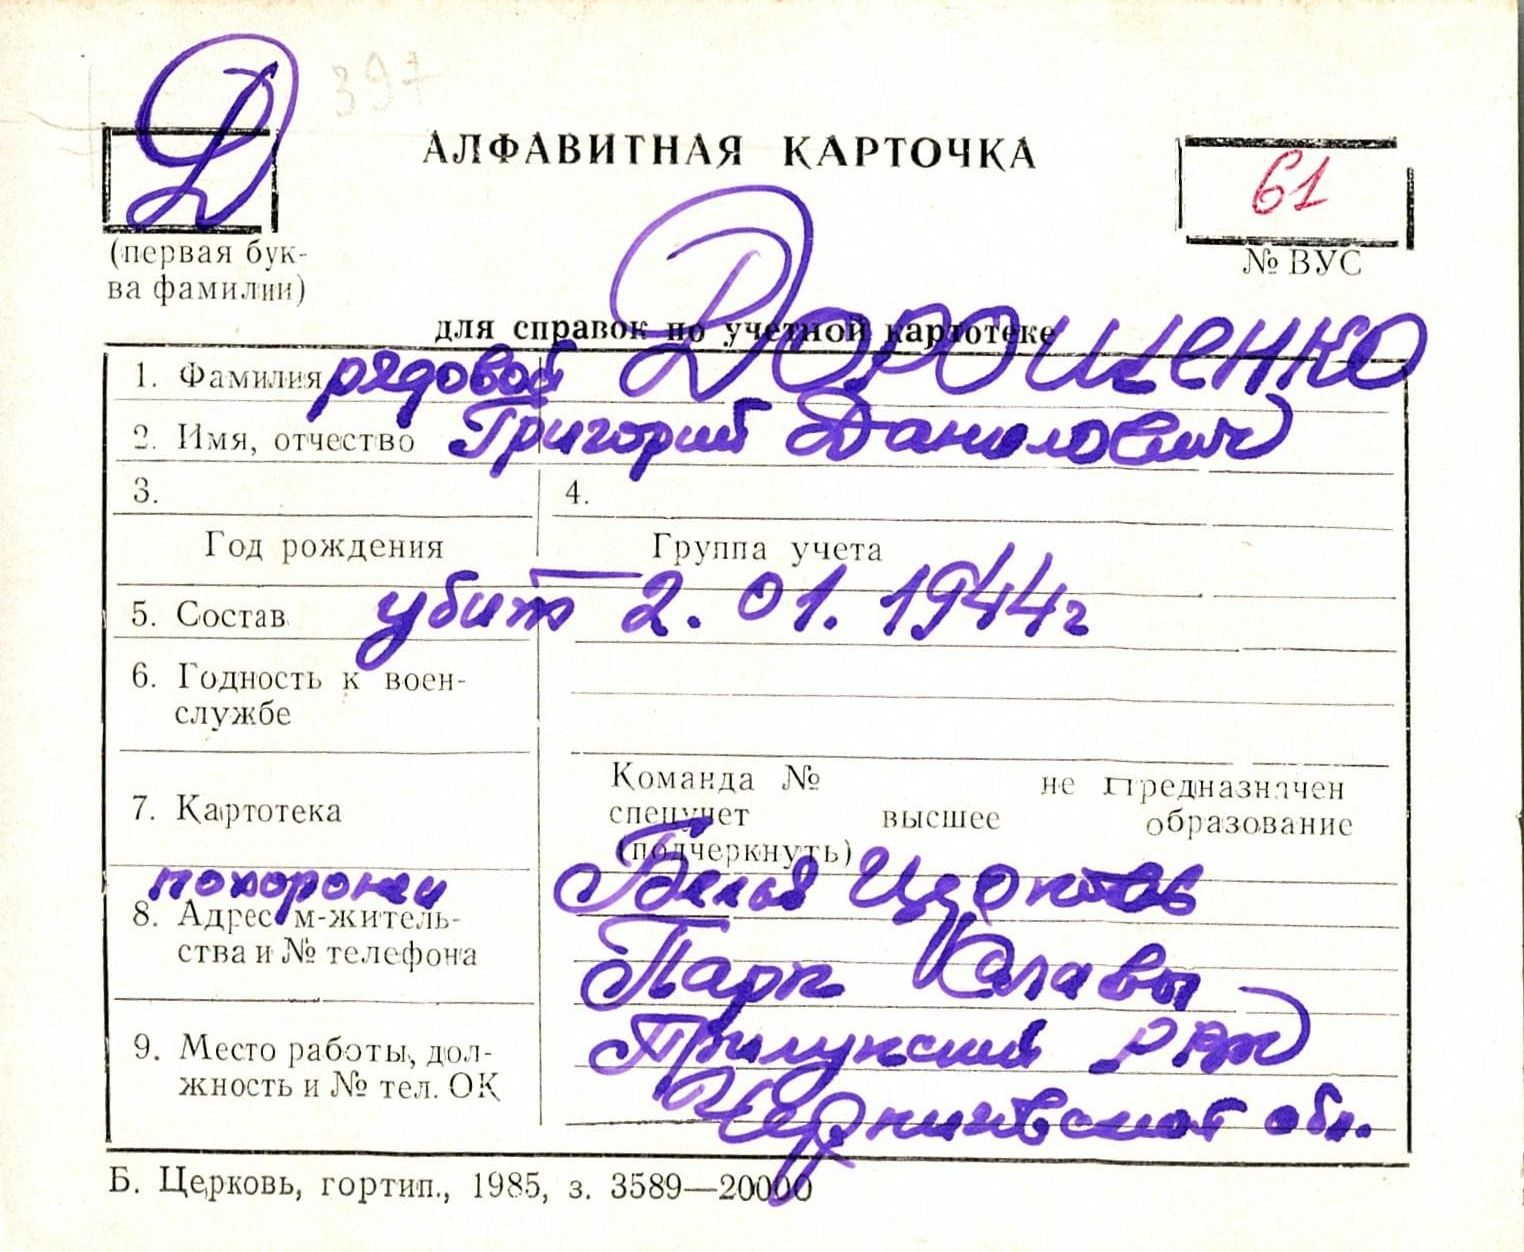 Д 397
АЛФАВИТНАЯ КАРТОЧКА
61
(первая бук-
ва фамилии)
№ ВУС
для справок по учетной картотеке
1. Фамилия рядовой Дорошенко
2. Имя, отчество Григорий Данилович
3. 4.
Год рождения Группа учета
5. Состав убит 2.01.1944г
6. Годность к воен-
службе
Команда № не предназначен
7. Картотека спецучет высшее образование
(подчеркнуть)
похоронен Белая Церковь
8. Адрес м-житель-
ства и № телефона Парк Славы
9. Место работы, дол- Прилукский РВК
жность и № тел. ОК Черниговской обл.
Б. Церковь, гортип., 1985, з. 3589—20000